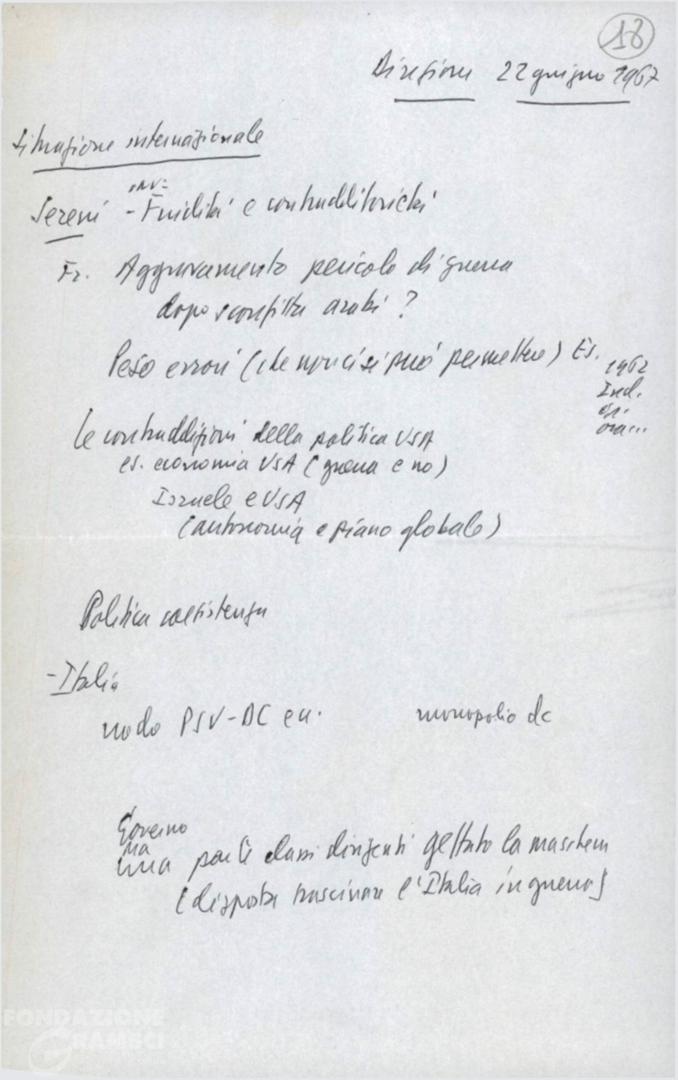 18
Direzione 22 giugno 1967
Situazione internazionale
Sereni - Fluidità e contraddittorietà
Fr. Aggravamento pericolo di guerra
dopo sconfitta arabi?
Peso errori (che non ci si può permettere) Es.
1962
Ind.
ora...
Le contraddizioni della politica USA
es. economia USA (guerra e no)
Israele e USA
(autonomia e piano globale)
Politica coesistenza
- Italia
nodo PSU-DC monopolio dc
Governo
ma
una parte classi dirigenti gettato la maschera
(disposta trascinare l'Italia in guerra)
FONDAZIONE
GRAMSCI